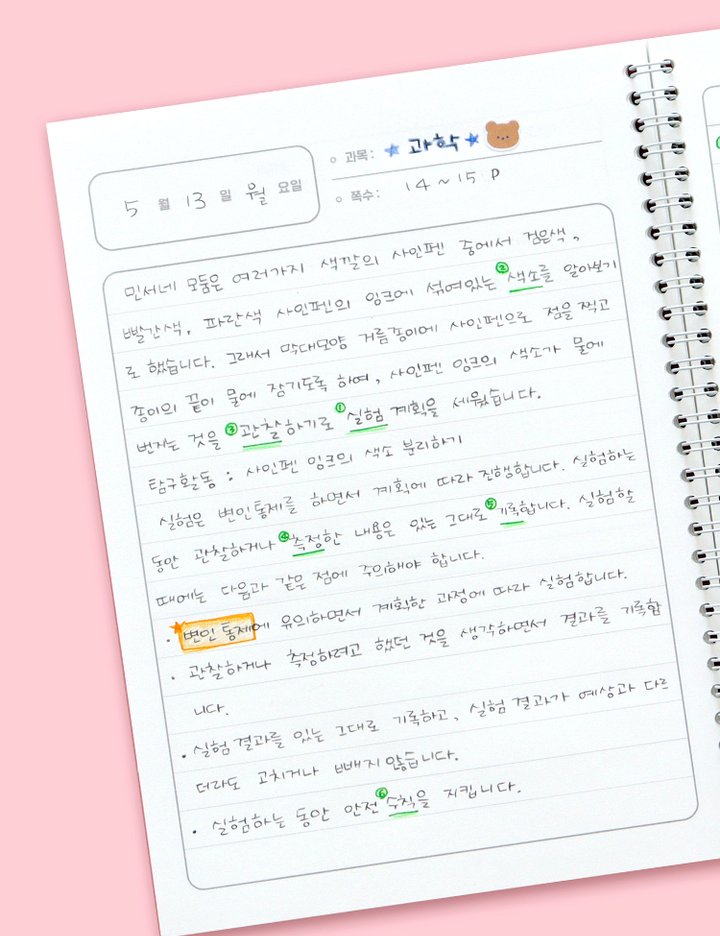 과목: 과학
5 월 13 일 월 요일
쪽수: 14 ~ 15 p
민서네 모둠은 여러가지 색깔의 사인펜 중에서 검은색,
빨간색, 파란색 사인펜의 잉크에 섞여있는 ②색소를 알아보기
로 했습니다. 그래서 막대모양 거름종이에 사인펜으로 점을 찍고
종이의 끝이 물에 잠기도록 하여, 사인펜 잉크의 색소가 물에
번지는 것을 ③관찰하기로 ①실험 계획을 세웠습니다.
탐구활동 : 사인펜 잉크의 색소 분리하기
실험은 변인통제를 하면서 계획에 따라 진행합니다. 실험하는
동안 관찰하거나 ④측정한 내용은 있는 그대로 ⑤기록합니다. 실험할
때에는 다음과 같은 점에 주의해야 합니다.
· 변인 통제에 유의하면서 계획한 과정에 따라 실험합니다.
· 관찰하거나 측정하려고 했던 것을 생각하면서 결과를 기록합
니다.
· 실험 결과를 있는 그대로 기록하고, 실험 결과가 예상과 다르
더라도 고치거나 빼지 않습니다.
· 실험하는 동안 안전 ⑥수칙을 지킵니다.